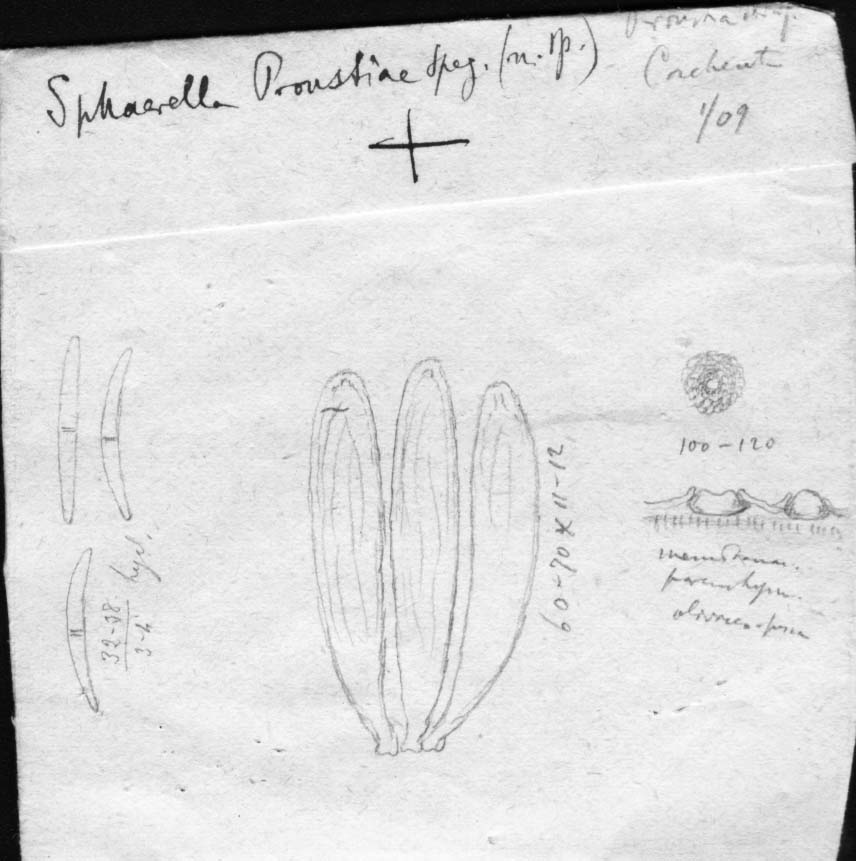 Sphaerella Proustiae Speg. (n. sp.)
Cacheuta
1/09
100-120
60-70 x 11-12
hyal.
32-38
3-4
membrana.
parenchym.